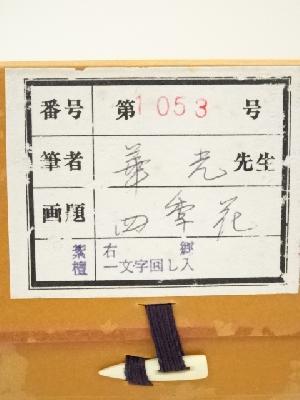 番号 第1053号
筆者 華光先生
画題 四季花
紫檀 右 郷
一文字回し入